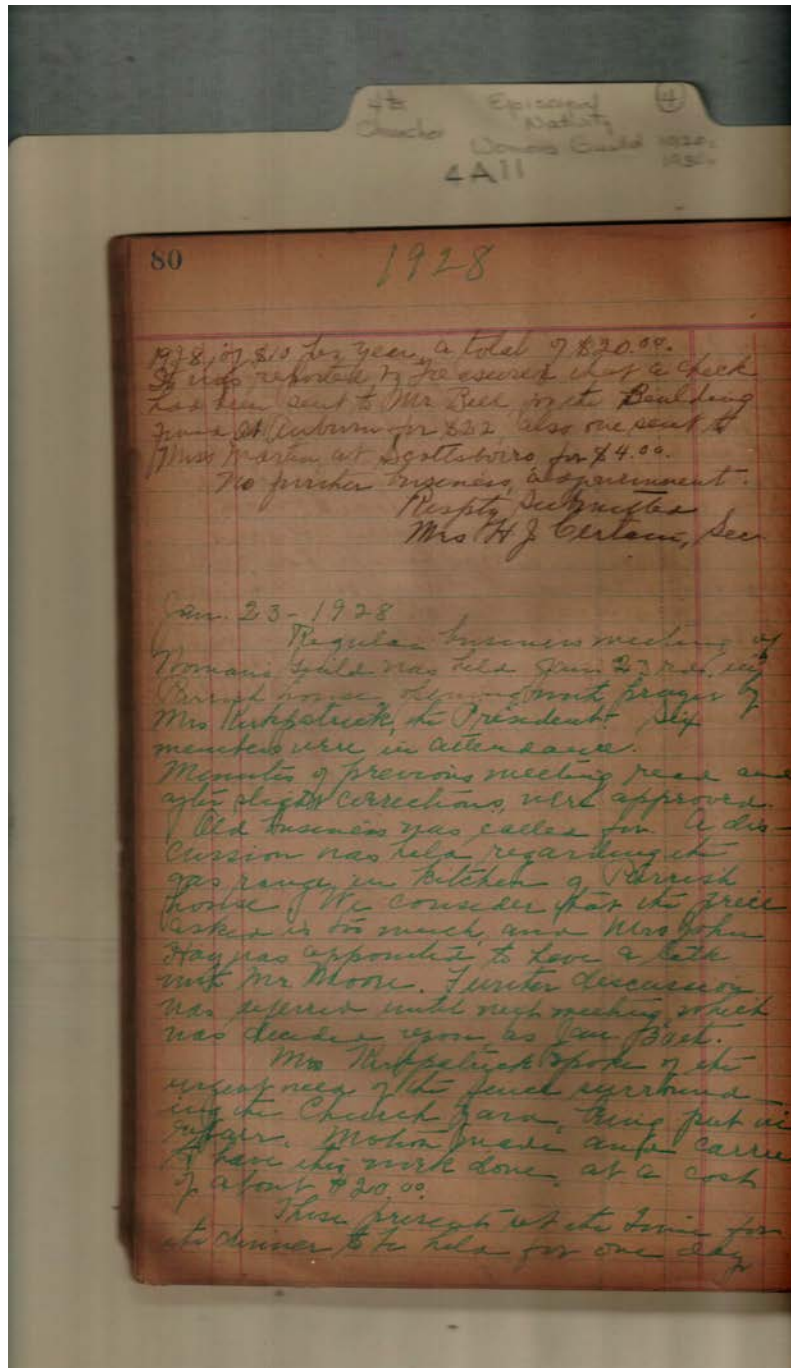 4 E Episcopal 4
Churches Nativity
Womans Guild 1920s
1930s
4A11
80 1928
1928, of $10 per year, a total of $20.00.
It was reported by Treasurer that a check
had been sent to Mr Bell for the Building
Fund at Auburn for also one sent to
Miss Martin at Scottsboro for $4.00.
No further business, adjournment.
Respty Submitted
Mrs H J Certain, Sec
Jan. 23 - 1928
Regular business meeting of
Womans Guild was held Jan 23rd, in
Parrish house, opening with prayer by
Mrs Kirkpatrick, the President. Six
members were in attendance.
Minutes of previous meeting read and
after slight corrections, were approved.
Old business was called for. A dis-
cussion was held regarding the
gas range in kitchen of Parrish
house. We consider that the price
asked is too much, and Mrs John
Hay was appointed to have a talk
with Mr Moore. Further discussion
was deferred until next meeting which
was decided upon as Jan
Mrs Kirkpatrick spoke of the
urgent need of the fence surround-
ing the Church Yard, being put in
repair. Motion made and carried
to have this work done, at a cost
of about $20.00
Those present set the time for
the dinner to be held for one day